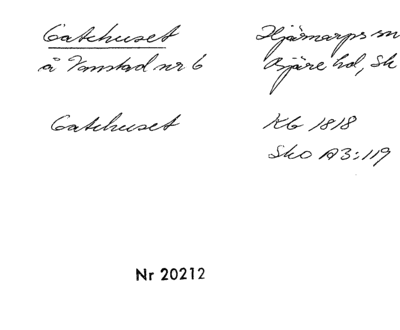 Gatehuset Hjärnarps sn
å Vanstad nr 6 Bjäre hd, Sk
Gatehuset Kb 1818
Sko A3:119
Nr 20212